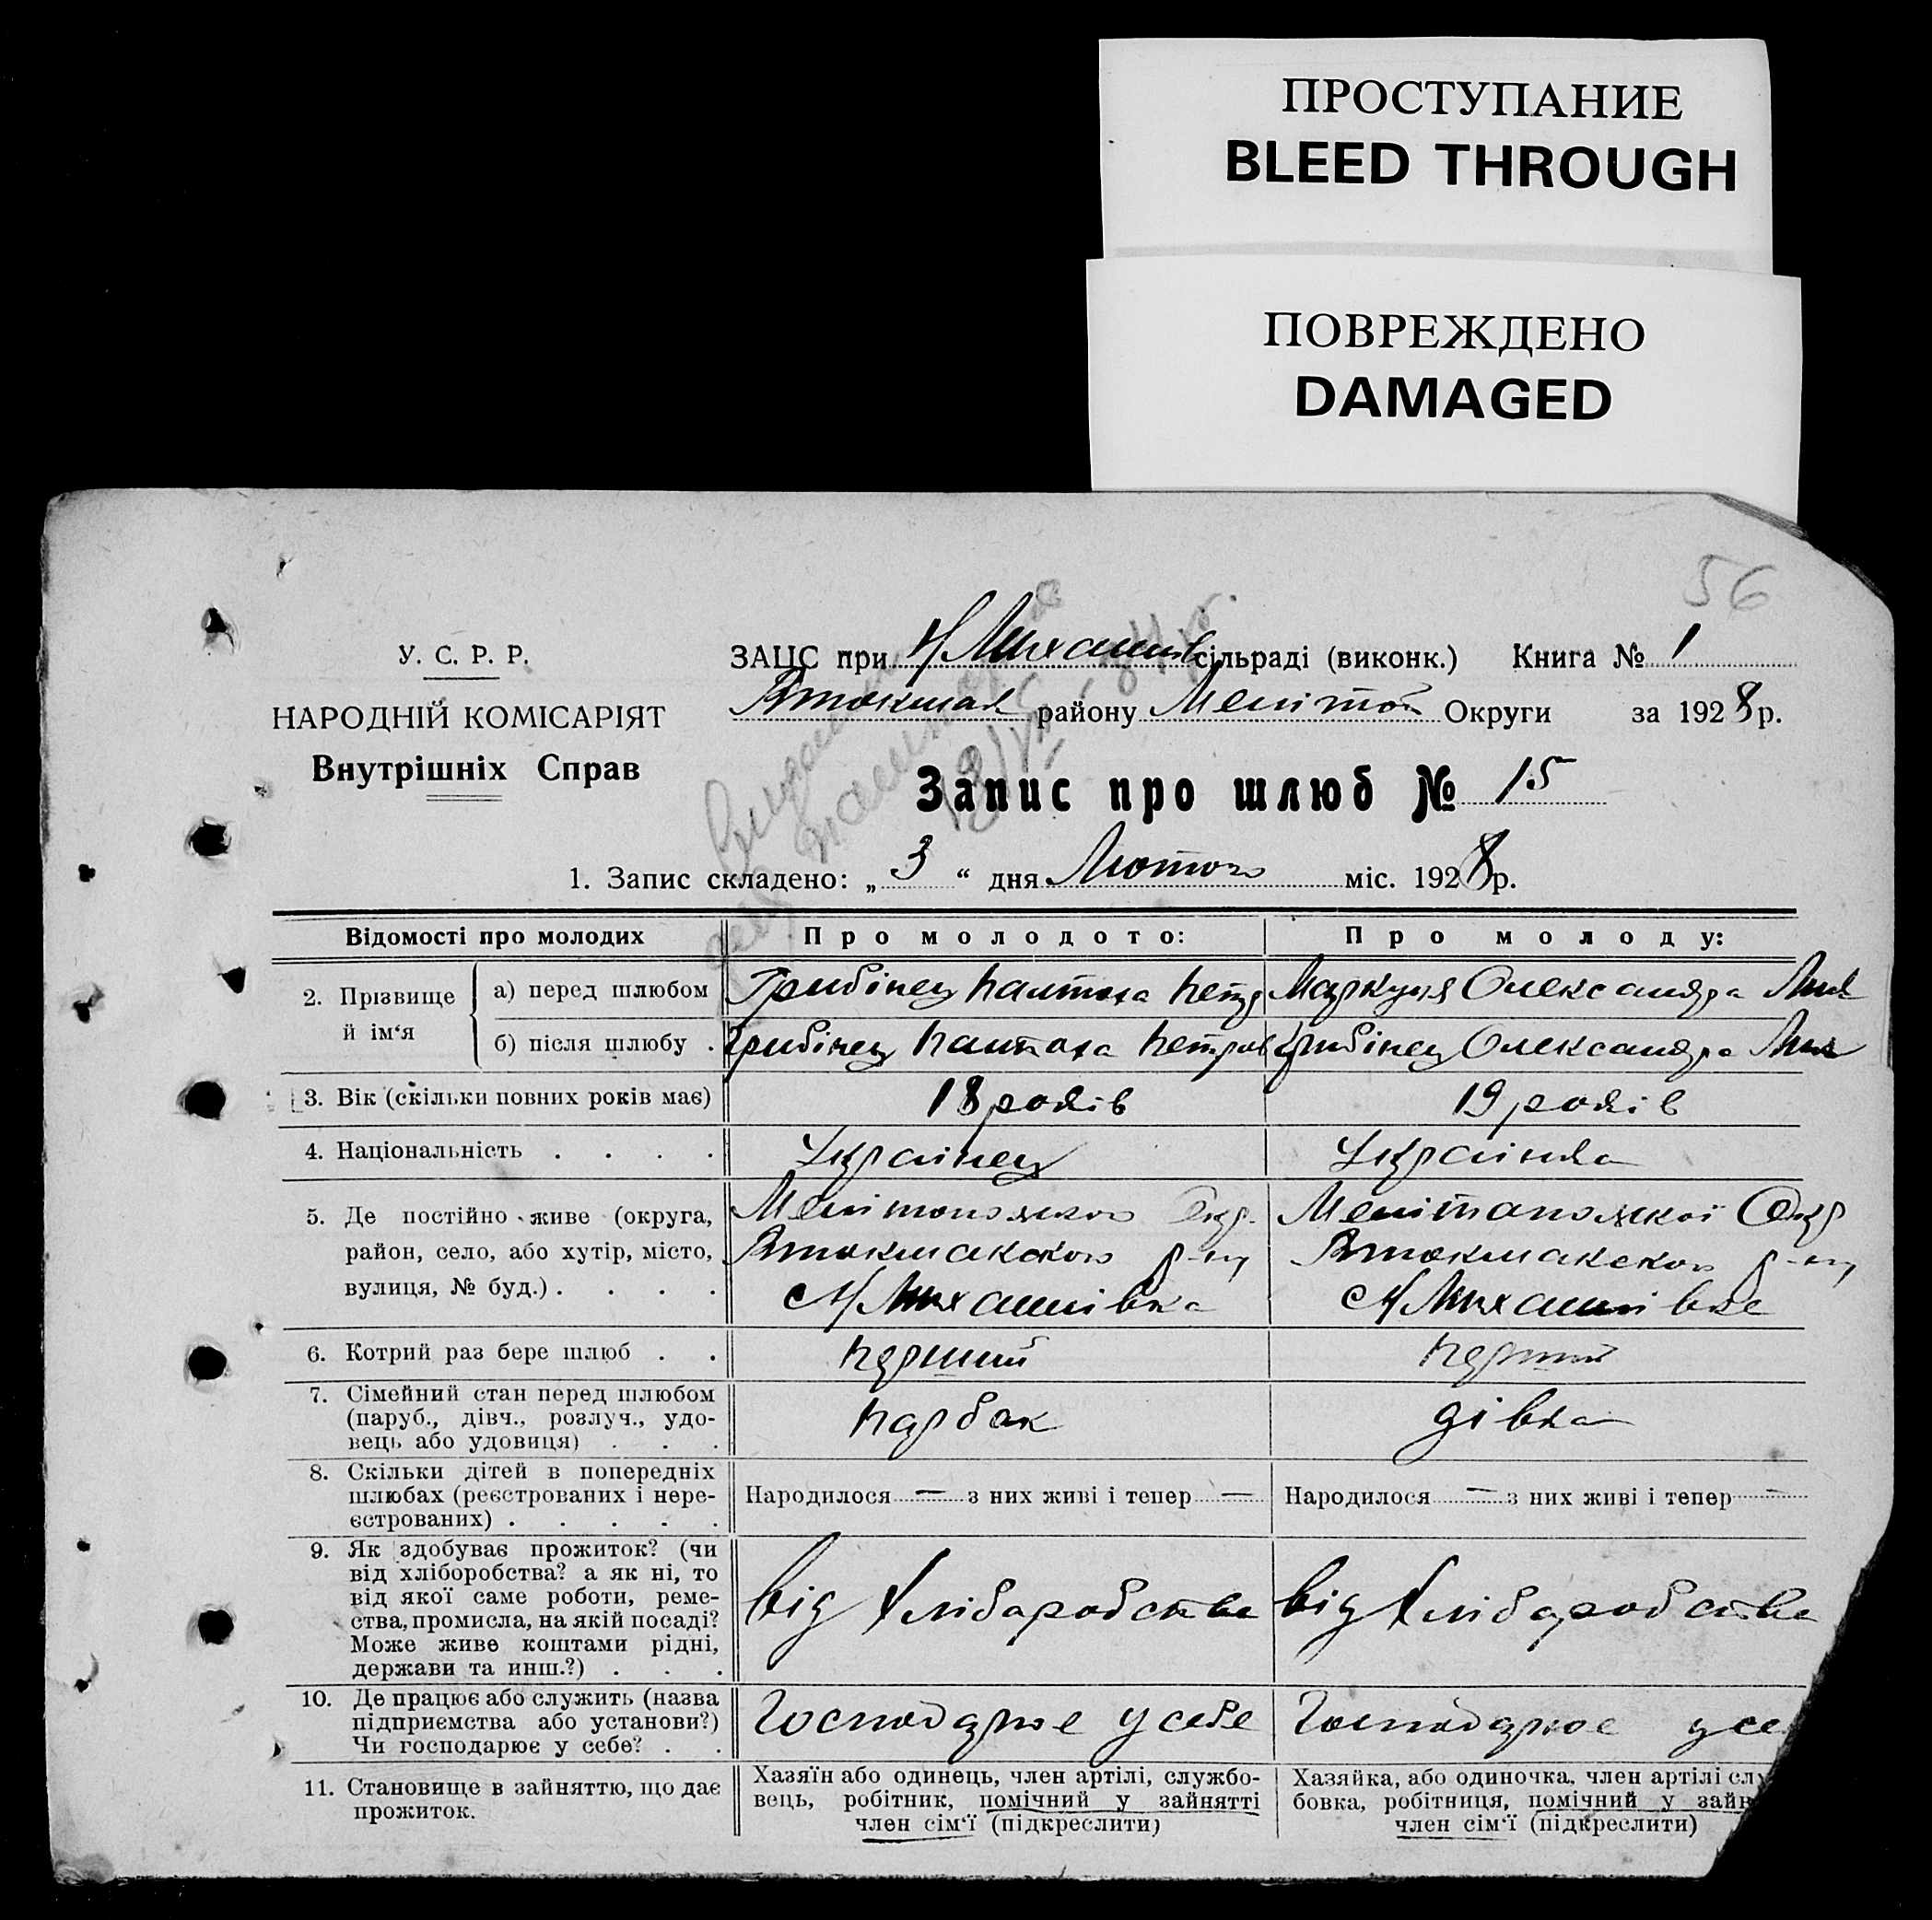 ПРОСТУПАНИЕ
BLEED THROUGH
ПОВРЕЖДЕНО
DAMAGED
56
У. С. Р. Р.
НАРОДНІЙ КОМІСАРІЯТ
Внутрішніх Справ
ЗАЦС при Н Михайлів сільраді (виконк.) Книга № 1
Втокмак району Мелітоп Округи за 1928 р.
Запис про шлюб № 15
1. Запис складено: „ 3 “ дня Лютого міс. 1928 р.
Відомості про молодих
Про молодого:
Про молоду:
2. Прізвище й ім‘я
а) перед шлюбом
Грибінец Петр
Олександра Мих
б) після шлюбу .
Грибінец Петров
Грибінец Олександра Мих
3. Вік (скільки повних років має)
18 років
19 років
4. Національність . . . .
Українец
Українка
5. Де постійно живе (округа,
район, село, або хутір, місто,
вулиця, № буд.) . . . .
Мелітопольского Окр.
Втокмакского р-ну
с Н Михайлівка
Мелітопольскої Окр
Втокмакского р-ну
с Н Михайлівка
6. Котрий раз бере шлюб . .
перший
перший
7. Сімейний стан перед шлюбом
(паруб., дівч., розлуч., удо-
вець або удовиця) . . .
парбак
дівка
8. Скільки дітей в попередніх
шлюбах (реєстрованих і нере-
єстрованих) . . . . .
Народилося — з них живі і тепер —
Народилося — з них живі і тепер —
9. Як здобуває прожиток? (чи
від хліборобства? а як ні, то
від якої саме роботи, реме-
ства, промисла, на якій посаді?
Може живе коштами рідні,
держави та инш.?) . . .
від хлібаробства
від хлібаробства
10. Де працює або служить (назва
підприємства або установи?)
Чи господарює у себе? . .
Господарює у себе
Господарює у се
11. Становище в зайняттю, що дає
прожиток.
Хазяїн або одинець, член артілі, службо-
вець, робітник, помічний у зайнятті
член сім‘ї (підкреслити)
Хазяйка, або одиночка, член артілі слу
бовка, робітниця, помічний у зайн
член сім‘ї (підкреслити)